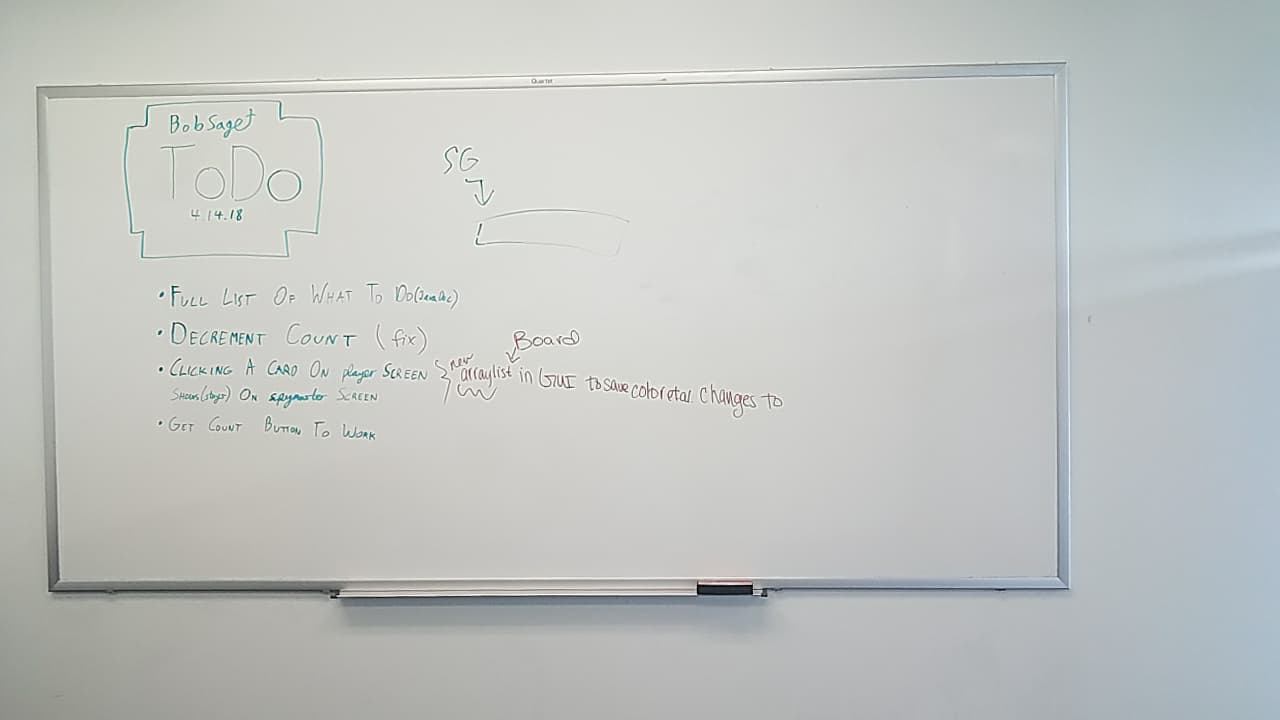 Quartet
BobSaget
ToDo
4.14.18
SG
• FULL LIST OF WHAT TO DO (JavaDoc)
• DECREMENT COUNT (fix)
Board
• CLICKING A CARD ON player SCREEN
SHOWS (stays) ON spymaster SCREEN
new
arraylist in GUI to save color etc. changes to
• GET COUNT BUTTON TO WORK